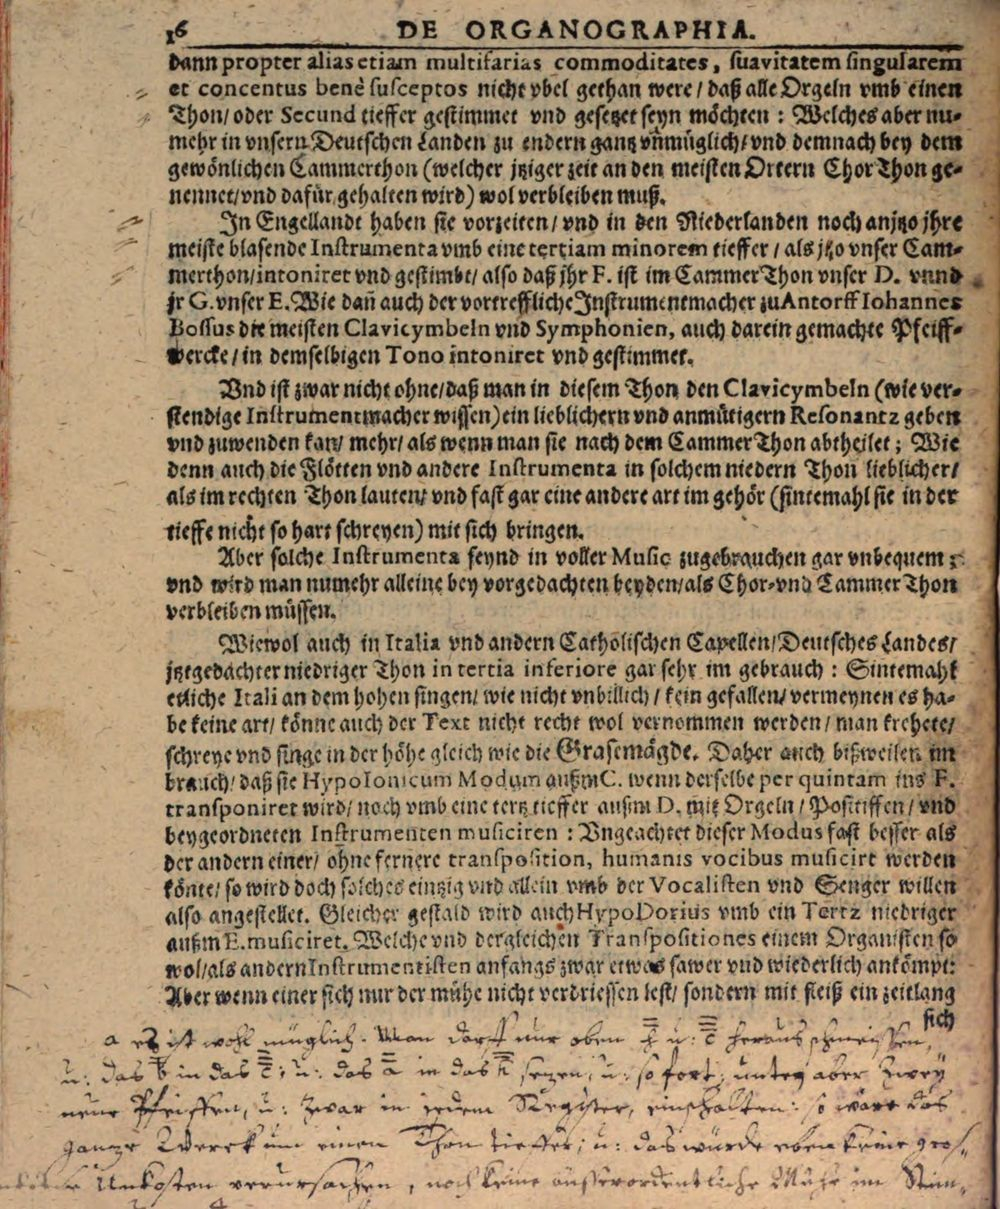 16 DE ORGANOGRAPHIA.
dann propter alias etiam multifarias commoditates, suavitatem singularem
et concentus benè susceptos nicht vbel gethan were / daß alle Orgeln vmb einen
Thon / oder Secund tieffer gestimmet vnd gesetzet seyn möchten : Welches aber nu-
mehr in vnsern Deutschen Landen zu endern gantz vñmüglich / vnd demnach bey dem
gewönlichen Cammerthon (welcher jtziger zeit an den meisten Ortern ChorThon ge-
nennet / vnd dafür gehalten wird) wol verbleiben muß.
In Engellandt haben sie vorzeiten / vnd in den Niederlanden noch anjtzo jhre
meiste blasende Instrumenta vmb eine tertiam minorem tieffer / als jtzo vnser Cam-
merthon / intoniret vnd gestimbt / also daß jhr F. ist im CammerThon vnser D. vnnd
jr G. vnser E. Wie dañ auch der vortreffliche Instrumentmacher zu Antorff Iohannes
Bossus die meisten Clavicymbeln vnd Symphonien, auch darein gemachte Pfeiff-
wercke / in demselbigen Tono intoniret vnd gestimmet.
Vnd ist zwar nicht ohne / daß man in diesem Thon den Clavicymbeln (wie ver-
stendige Instrumentmacher wissen) ein lieblichern vnd anmütigern Resonantz geben
vnd zuwenden kan / mehr / als wenn man sie nach dem CammerThon abtheilet ; Wie
denn auch die Flötten vnd andere Instrumenta in solchem niedern Thon lieblicher /
als im rechten Thon lauten / vnd fast gar eine andere art im gehör (sintemahl sie in der
tieffe nicht so hart schreyen) mit sich bringen.
Aber solche Instrumenta seynd in voller Music zugebrauchen gar vnbequem ;
vnd wird man numehr alleine bey vorgedachten beyden / als Chor-vnd CammerThon
verbleiben müssen.
Wiewol auch in Italia vnd andern Catholischen Capellen / Deutsches Landes /
jtztgedachter niedriger Thon in tertia inferiore gar sehr im gebrauch : Sintemahl
etliche Itali an dem hohen singen / wie nicht vnbillich / kein gefallen / vermeynen es ha-
be keine art / könne auch der Text nicht recht wol vernommen werden / man krehete /
schreye vnd singe in der höhe gleich wie die Grasemägde. Daher auch bißweilen im
brauch / daß sie HypoIonicum Modum außm C. wenn derselbe per quintam ins F.
transponiret wird / noch vmb eine tertz tieffer ausm D. mit Orgeln / Positiffen / vnd
beygeordneten Instrumenten musiciren : Vngeachtet dieser Modus fast besser als
der andern einer / ohne fernere transposition, humanis vocibus musicirt werden
könte / so wird doch solches eintzig vnd allein vmb der Vocalisten vnd Senger willen
also angestellet. Gleicher gestald wird auch HypoDorius vmb ein Tertz niedriger
außm E. musiciret. Welche vnd dergleichen Transpositiones einem Organisten so
wol / als andern Instrumentisten anfangs zwar etwas sawer vnd wiederlich ankömpt:
Aber wenn einer sich nur der mühe nicht verdriessen lest / sondern mit fleiß ein zeitlang
sich
a es ist wohl müglich. Man darff nur oben h u: c heraus schmeissen,
u: das b in das c, u: das a in das h sezen, u: so fort; unten aber zwey
neue Pfeiffen, u: zwar in jedem Register, einschalten: so wäre das
ganze Werck um einen Thon tieffer; u: das würde eben keine gros-
Unkosten verursachen, noch keine ausserordentliche Mühe im Stim-